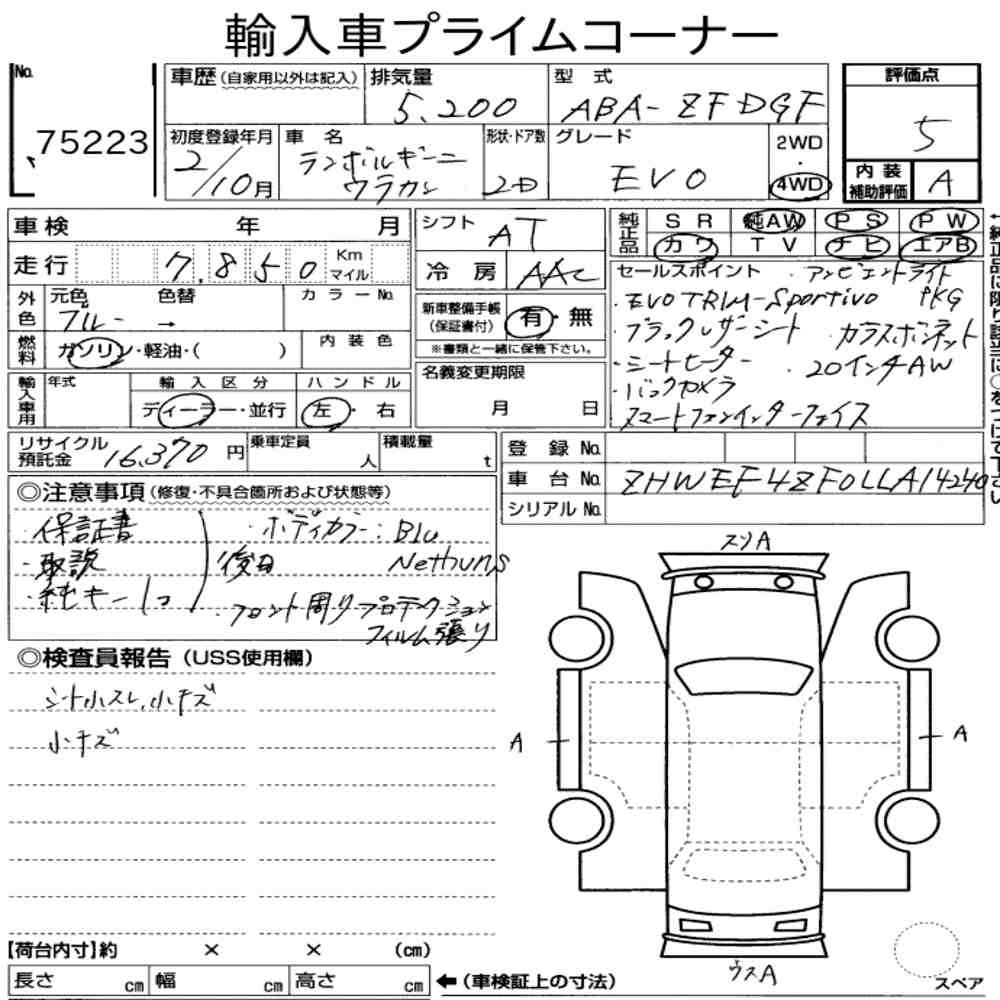 輸入車プライムコーナー
No. 75223
車歴(自家用以外は記入)
排気量 5,200
型式 ABA-ZFDGF
評価点 5
初度登録年月 2/10月
車名 ランボルギーニ ウラカン
形状・ドア数 2D
グレード EVO
2WD・4WD
内装補助評価 A
車検 年 月
シフト AT
純正品 SR 純AW PS PW
カワ TV ナビ エアB
走行 7,850 Km マイル
冷房 AAC
セールスポイント ・アンビエントライト
・EVO TRIM-Sportivo PKG
・ブラックレザーシート ・ガラスボンネット
・シートヒーター ・20インチAW
・バックカメラ
・スマートフォンインターフェイス
外色 元色 ブルー 色替 → カラーNo.
新車整備手帳(保証書付) 有・無
※書類と一緒に保管下さい。
燃料 ガソリン・軽油・( ) 内装色
名義変更期限 月 日
輸入車用 年式 輸入区分 ディーラー・並行 ハンドル 左・右
リサイクル預託金 16,370円
乗車定員 人
積載量 t
登録No.
車台No. ZHWEF4ZF0LLA14240
シリアルNo.
◎注意事項(修復・不具合箇所および状態等)
・保証書 ・ボディカラー:Blu
・取説 後日 Nethuns
・純キー1コ ・フロント周りプロテクション
フィルム張り
◎検査員報告(USS使用欄)
シート小スレ、小キズ
小キズ
スリA
A
A
ウスA
【荷台内寸】約 × × (cm)
長さ cm 幅 cm 高さ cm ←(車検証上の寸法)
スペア